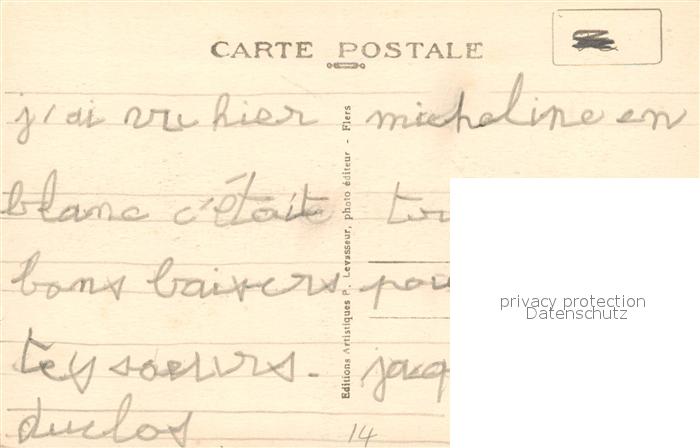 CARTE POSTALE
j'ai vu hier micheline en
blanc c'était
bons baisers
tes soeurs.
duclos
14
Editions Artistiques P. Levasseur, photo éditeur - Flers
privacy protection
Datenschutz